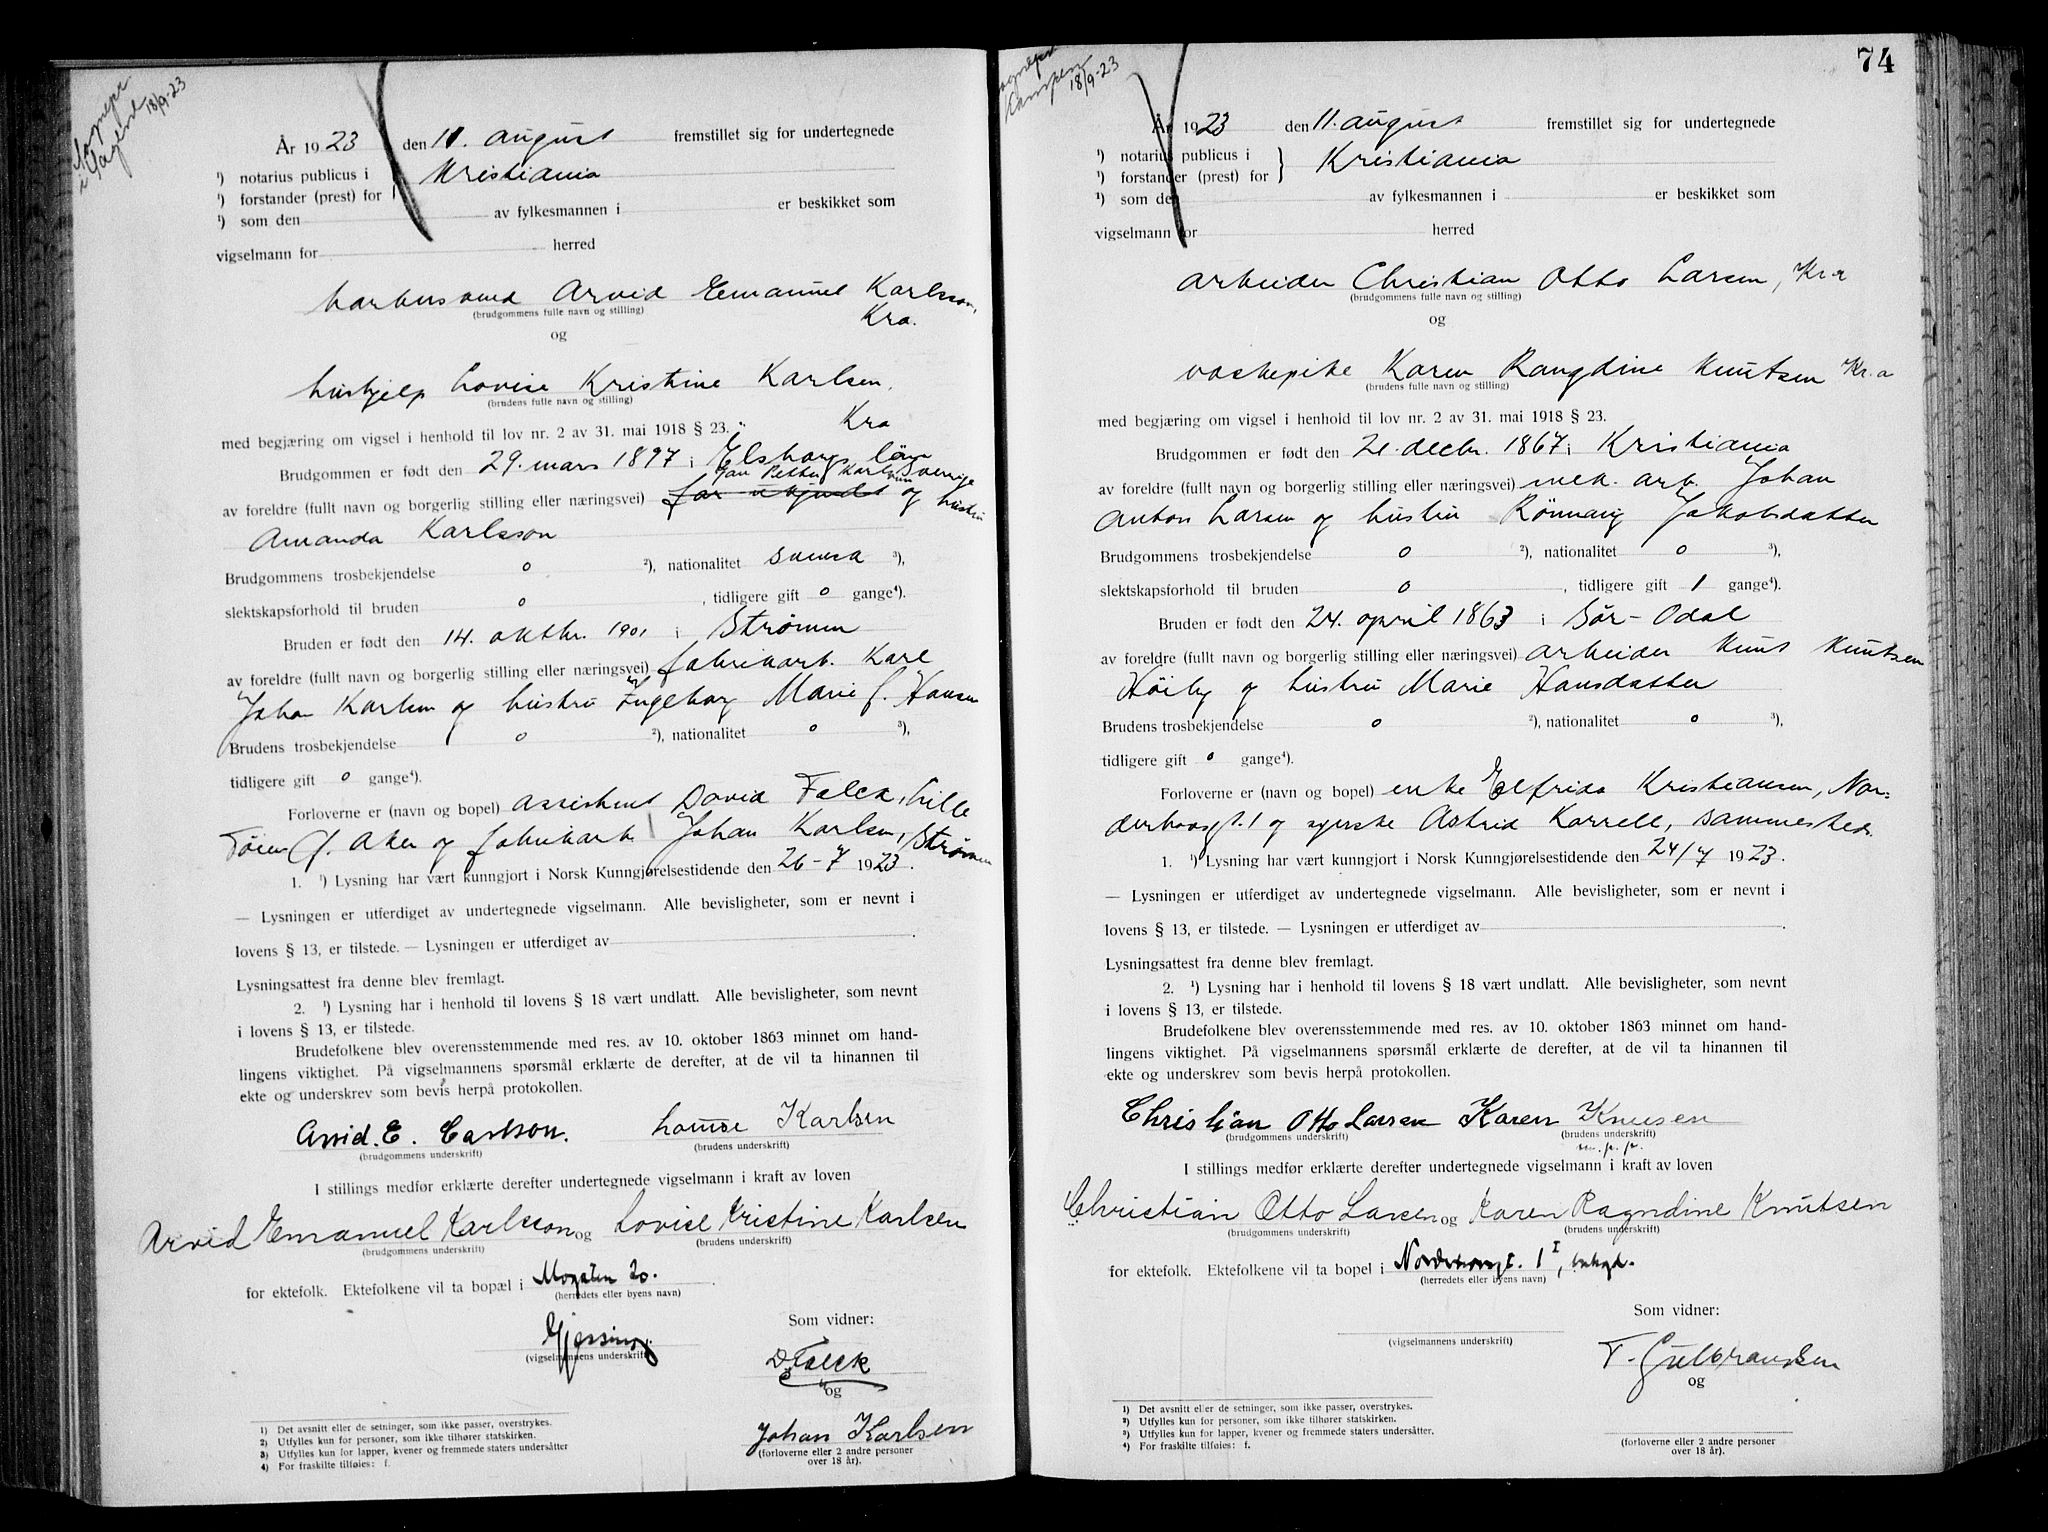 Sogneprt
i Sagene 18/9-23
År 1923 den 11. august fremstillet sig for undertegnede
¹) notarius publicus i
¹) forstander (prest) for } Kristiania
¹) som den av fylkesmannen i er beskikket som
vigselmann for herred
Arvid Emanuel Karlsson,
(brudgommens fulle navn og stilling)
Kra.
og
hushjelp Lovise Kristine Karlsen.
(brudens fulle navn og stilling)
Kra
med begjæring om vigsel i henhold til lov nr. 2 av 31. mai 1918 § 23.
Brudgommen er født den 29. mars 1897 i Elsborgs län
Sverrige
Petter Karlsson
av foreldre (fullt navn og borgerlig stilling eller næringsvei) far ukjendt og hustru
Amanda Karlsson
Brudgommens trosbekjendelse o ²), nationalitet svensk ³),
slektskapsforhold til bruden o, tidligere gift o gange⁴).
Bruden er født den 14. oktbr. 1901 i Strømmen
av foreldre (fullt navn og borgerlig stilling eller næringsvei) fabrikarb. Karl
Johan Karlsen og hustru Ingeborg Marie f. Hansen
Brudens trosbekjendelse o ²), nationalitet o ³),
tidligere gift o gange⁴).
Forloverne er (navn og bopel) assistent David Falck, Lille
Tøien Ø. Aker og fabrikarb. Johan Karlsen, Strømmen
1. ¹) Lysning har vært kunngjort i Norsk Kunngjørelsestidende den 26-7 1923.
— Lysningen er utferdiget av undertegnede vigselmann. Alle bevisligheter, som er nevnt i
lovens § 13, er tilstede. — Lysningen er utferdiget av
Lysningsattest fra denne blev fremlagt.
2. ¹) Lysning har i henhold til lovens § 18 vært undlatt. Alle bevisligheter, som nevnt
i lovens § 13, er tilstede.
Brudefolkene blev overensstemmende med res. av 10. oktober 1863 minnet om hand-
lingens viktighet. På vigselmannens spørsmål erklærte de derefter, at de vil ta hinannen til
ekte og underskrev som bevis herpå protokollen.
Arvid. E. Carlson. Lovise Karlsen
(brudgommens underskrift) (brudens underskrift)
I stillings medfør erklærte derefter undertegnede vigselmann i kraft av loven
Arvid Emanuel Karlsson og Lovise Kristine Karlsen
(brudgommens underskrift) (brudens underskrift)
for ektefolk. Ektefolkene vil ta bopæl i Mogaten 20.
(herredets eller byens navn)
Som vidner:
Gjessing
(vigselmannens underskrift)
D. Falck
og
Johan Karlsen
(forloverne eller 2 andre personer
over 18 år).
1) Det avsnitt eller de setninger, som ikke passer, overstrykes.
2) Utfylles kun for personer, som ikke tilhører statskirken.
3) Utfylles kun for lapper, kvener og fremmede staters undersåtter
4) For fraskilte tilføies: f.
74
Sogneprt
Kampen
18/9-23
År 1923 den 11. august fremstillet sig for undertegnede
¹) notarius publicus i
¹) forstander (prest) for } Kristiania
¹) som den av fylkesmannen i er beskikket som
vigselmann for herred
arbeider Christian Otto Larsen, Kr.a
(brudgommens fulle navn og stilling)
og
vaskepike Karen Rangdine Knutsen Kr.a
(brudens fulle navn og stilling)
med begjæring om vigsel i henhold til lov nr. 2 av 31. mai 1918 § 23.
Brudgommen er født den 21. decbr. 1867 i Kristiania
av foreldre (fullt navn og borgerlig stilling eller næringsvei) mek. arb. Johan
Anton Larsen og hustru Rønnaug Jakobsdatter
Brudgommens trosbekjendelse o ²), nationalitet o ³),
slektskapsforhold til bruden o, tidligere gift 1 gange⁴).
Bruden er født den 24. april 1863 i Sør-Odal
av foreldre (fullt navn og borgerlig stilling eller næringsvei) arbeider Knut Knutsen
Høiby og hustru Marie Hansdatter
Brudens trosbekjendelse o ²), nationalitet o ³),
tidligere gift o gange⁴).
Forloverne er (navn og bopel) enke Elfrida Kristiansen, Nor-
derhovsgt. 1 og syerske Astrid Karrell, sammesteds.
1. ¹) Lysning har vært kunngjort i Norsk Kunngjørelsestidende den 24/7 1923.
— Lysningen er utferdiget av undertegnede vigselmann. Alle bevisligheter, som er nevnt i
lovens § 13, er tilstede. — Lysningen er utferdiget av
Lysningsattest fra denne blev fremlagt.
2. ¹) Lysning har i henhold til lovens § 18 vært undlatt. Alle bevisligheter, som nevnt
i lovens § 13, er tilstede.
Brudefolkene blev overensstemmende med res. av 10. oktober 1863 minnet om hand-
lingens viktighet. På vigselmannens spørsmål erklærte de derefter, at de vil ta hinannen til
ekte og underskrev som bevis herpå protokollen.
Christian Otto Larsen Karen Knusen
(brudgommens underskrift) (brudens underskrift)
m. p. p.
I stillings medfør erklærte derefter undertegnede vigselmann i kraft av loven
Christian Otto Larsen og Karen Ragndine Knutsen
(brudgommens underskrift) (brudens underskrift)
for ektefolk. Ektefolkene vil ta bopel i Norderhovsgt. 1 I,
(herredets eller byens navn)
Som vidner:
(vigselmannens underskrift)
T. Gulbrandsen
og
(forloverne eller 2 andre personer
over 18 år).
1) Det avsnitt eller de setninger, som ikke passer, overstrykes.
2) Utfylles kun for personer, som ikke tilhører statskirken.
3) Utfylles kun for lapper, kvener og fremmede staters undersåtter.
4) For fraskilte tilføies: f.